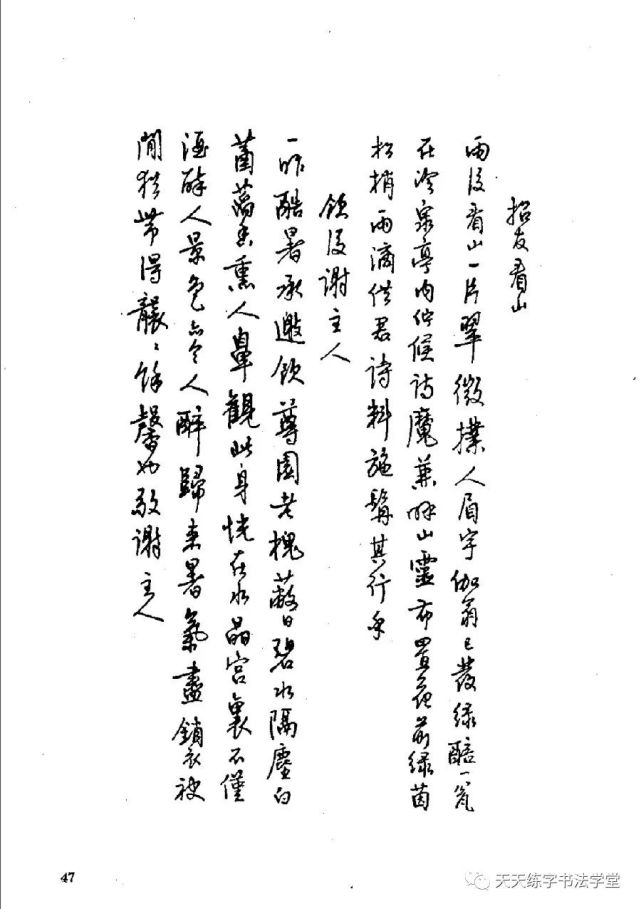 招友看山
雨後看山一片翠微撲人眉宇伽翁已發綠醅一瓮
在冷泉亭内伫候詩魔兼囑山靈布置花前綠茵
松梢雨滴供君詩料施髯其行乎
飲後謝主人
一昨酷暑承邀飲尊園老槐蔽日碧水隔塵白
菡萏香熏人鼻觀此身恍在水晶宮裏不僅
酒醉人景色亦令人醉歸來暑氣盡銷衣袂
間猶帶得靉靉餘馨也敬謝主人
47
天天练字书法学堂